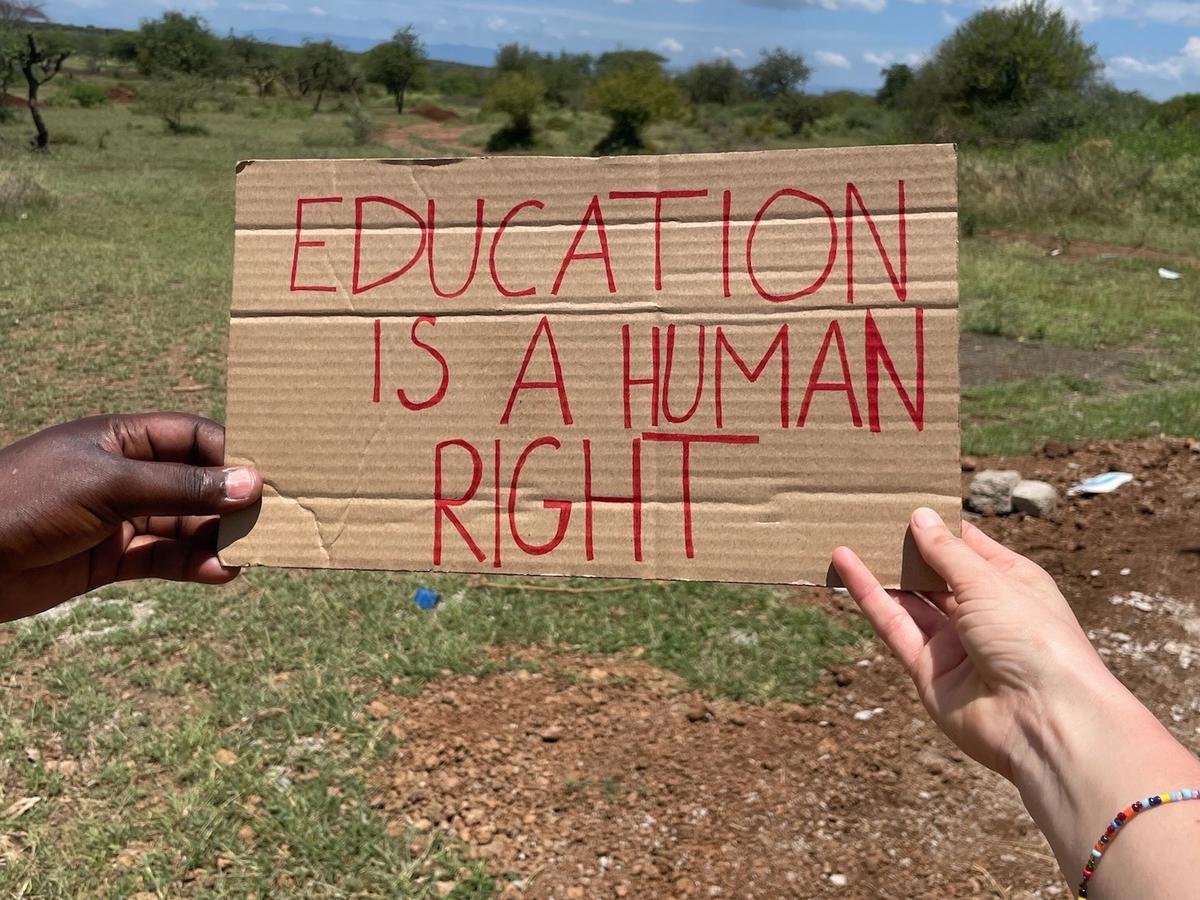 EDUCATION
IS A HUMAN
RIGHT